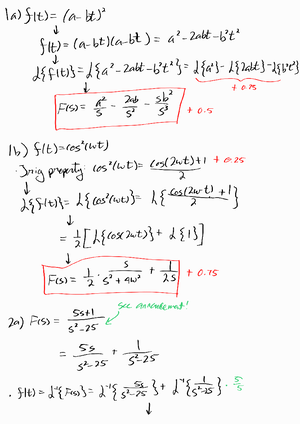 1a) f(t) = (a-bt)²
f(t) = (a-bt)(a-bt) = a² - 2abt - b²t²
L{f(t)} = L{a² - 2abt - b²t²} = L{a²} - L{2abt} - L{b²t²}
+ 0.75
F(s) = a²/s - 2ab/s² - 5b²/s³ + 0.5
1b) f(t) = cos²(wt)
· Trig property: cos²(wt) = (cos(2wt)+1)/2 + 0.25
L{f(t)} = L{cos²(wt)} = L{(cos(2wt)+1)/2}
= 1/2 [L{cos(2wt)} + L{1}]
F(s) = 1/2 · s/(s²+4w²) + 1/2s + 0.75
2a) F(s) = (5s+1)/(s²-25) see announcement!
= 5s/(s²-25) + 1/(s²-25)
· f(t) = L⁻¹{F(s)} = L⁻¹{5s/(s²-25)} + L⁻¹{1/(s²-25)} · 5/5